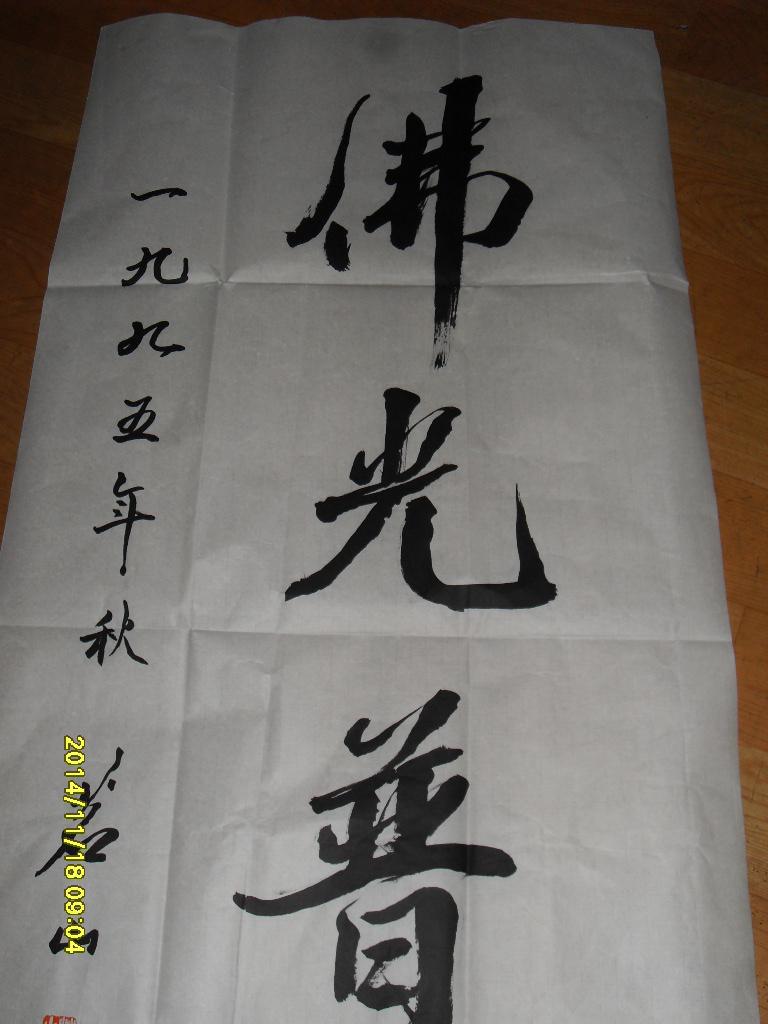 佛光普
一九九五年秋
茗山
2014/11/18 09:04